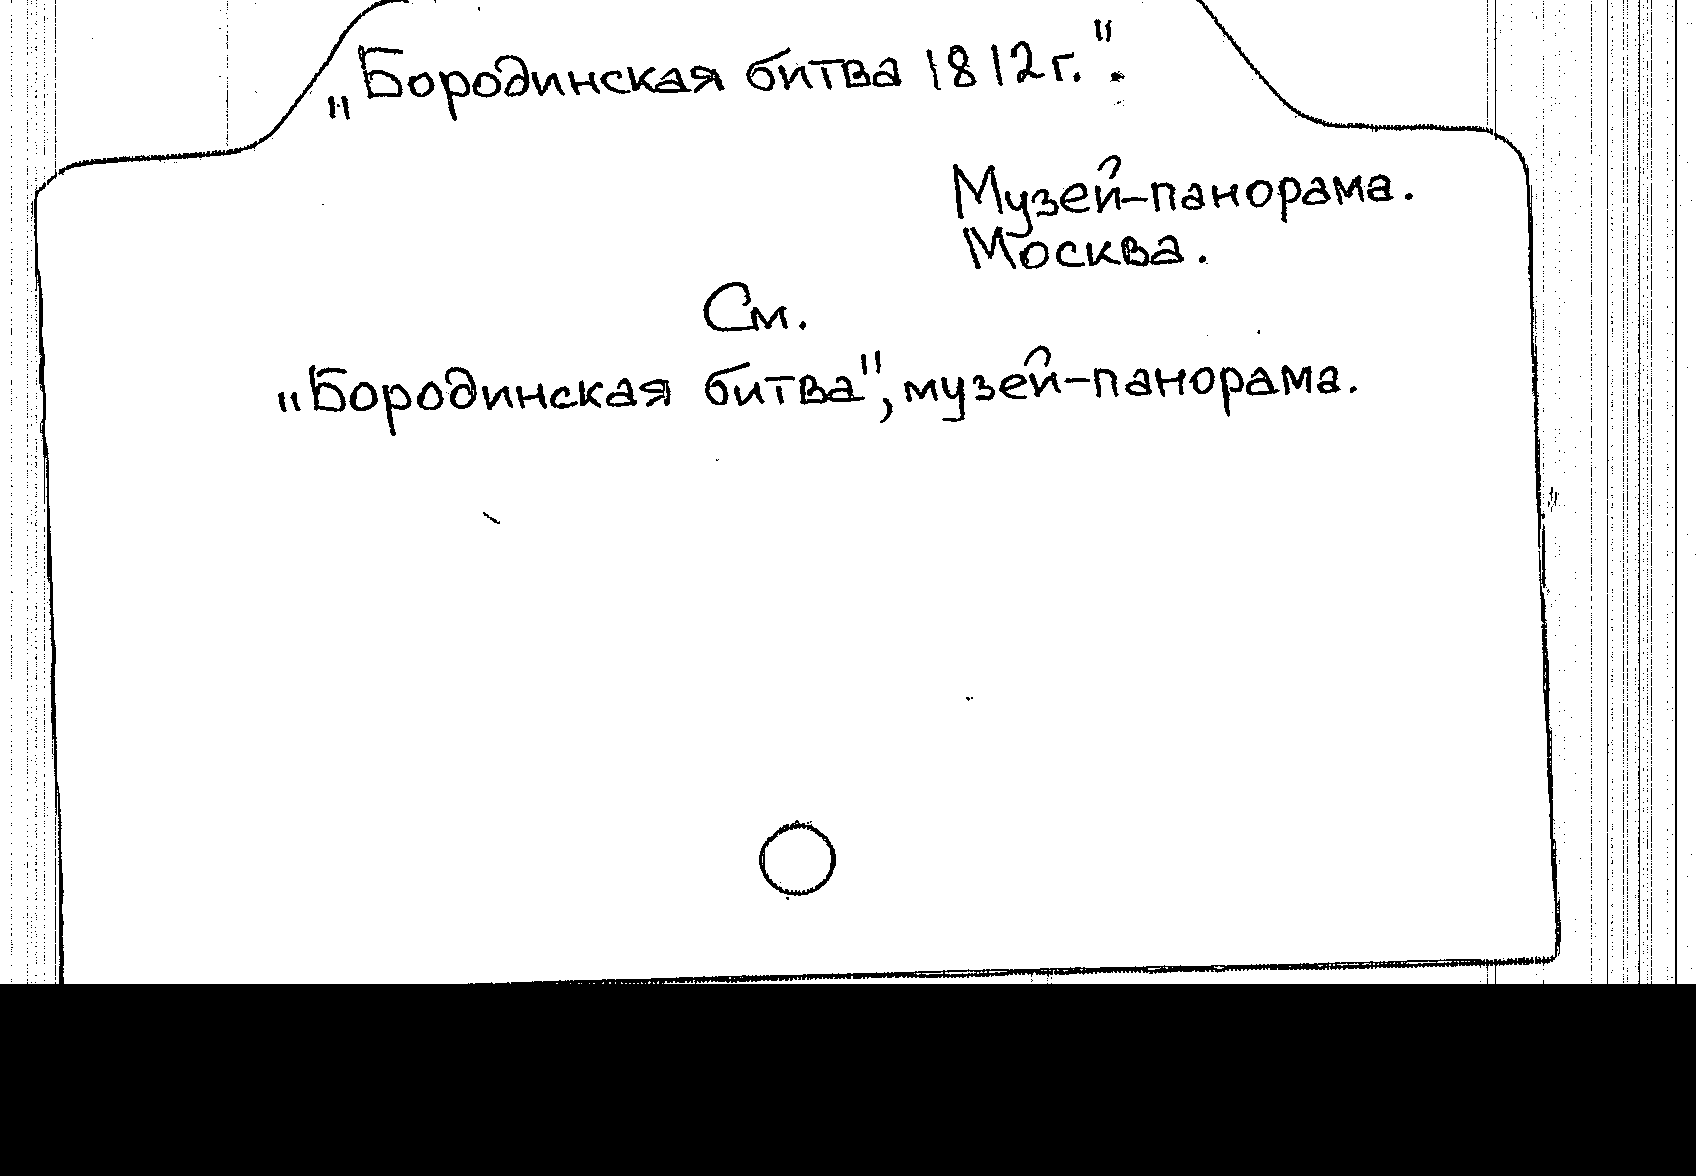 „Бородинская битва 1812г.".
Музей-панорама.
Москва.
См.
„Бородинская битва", музей-панорама.